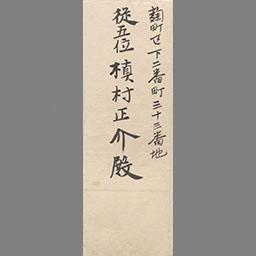 麹町区下二番町三十三番地
従五位槙村正介殿